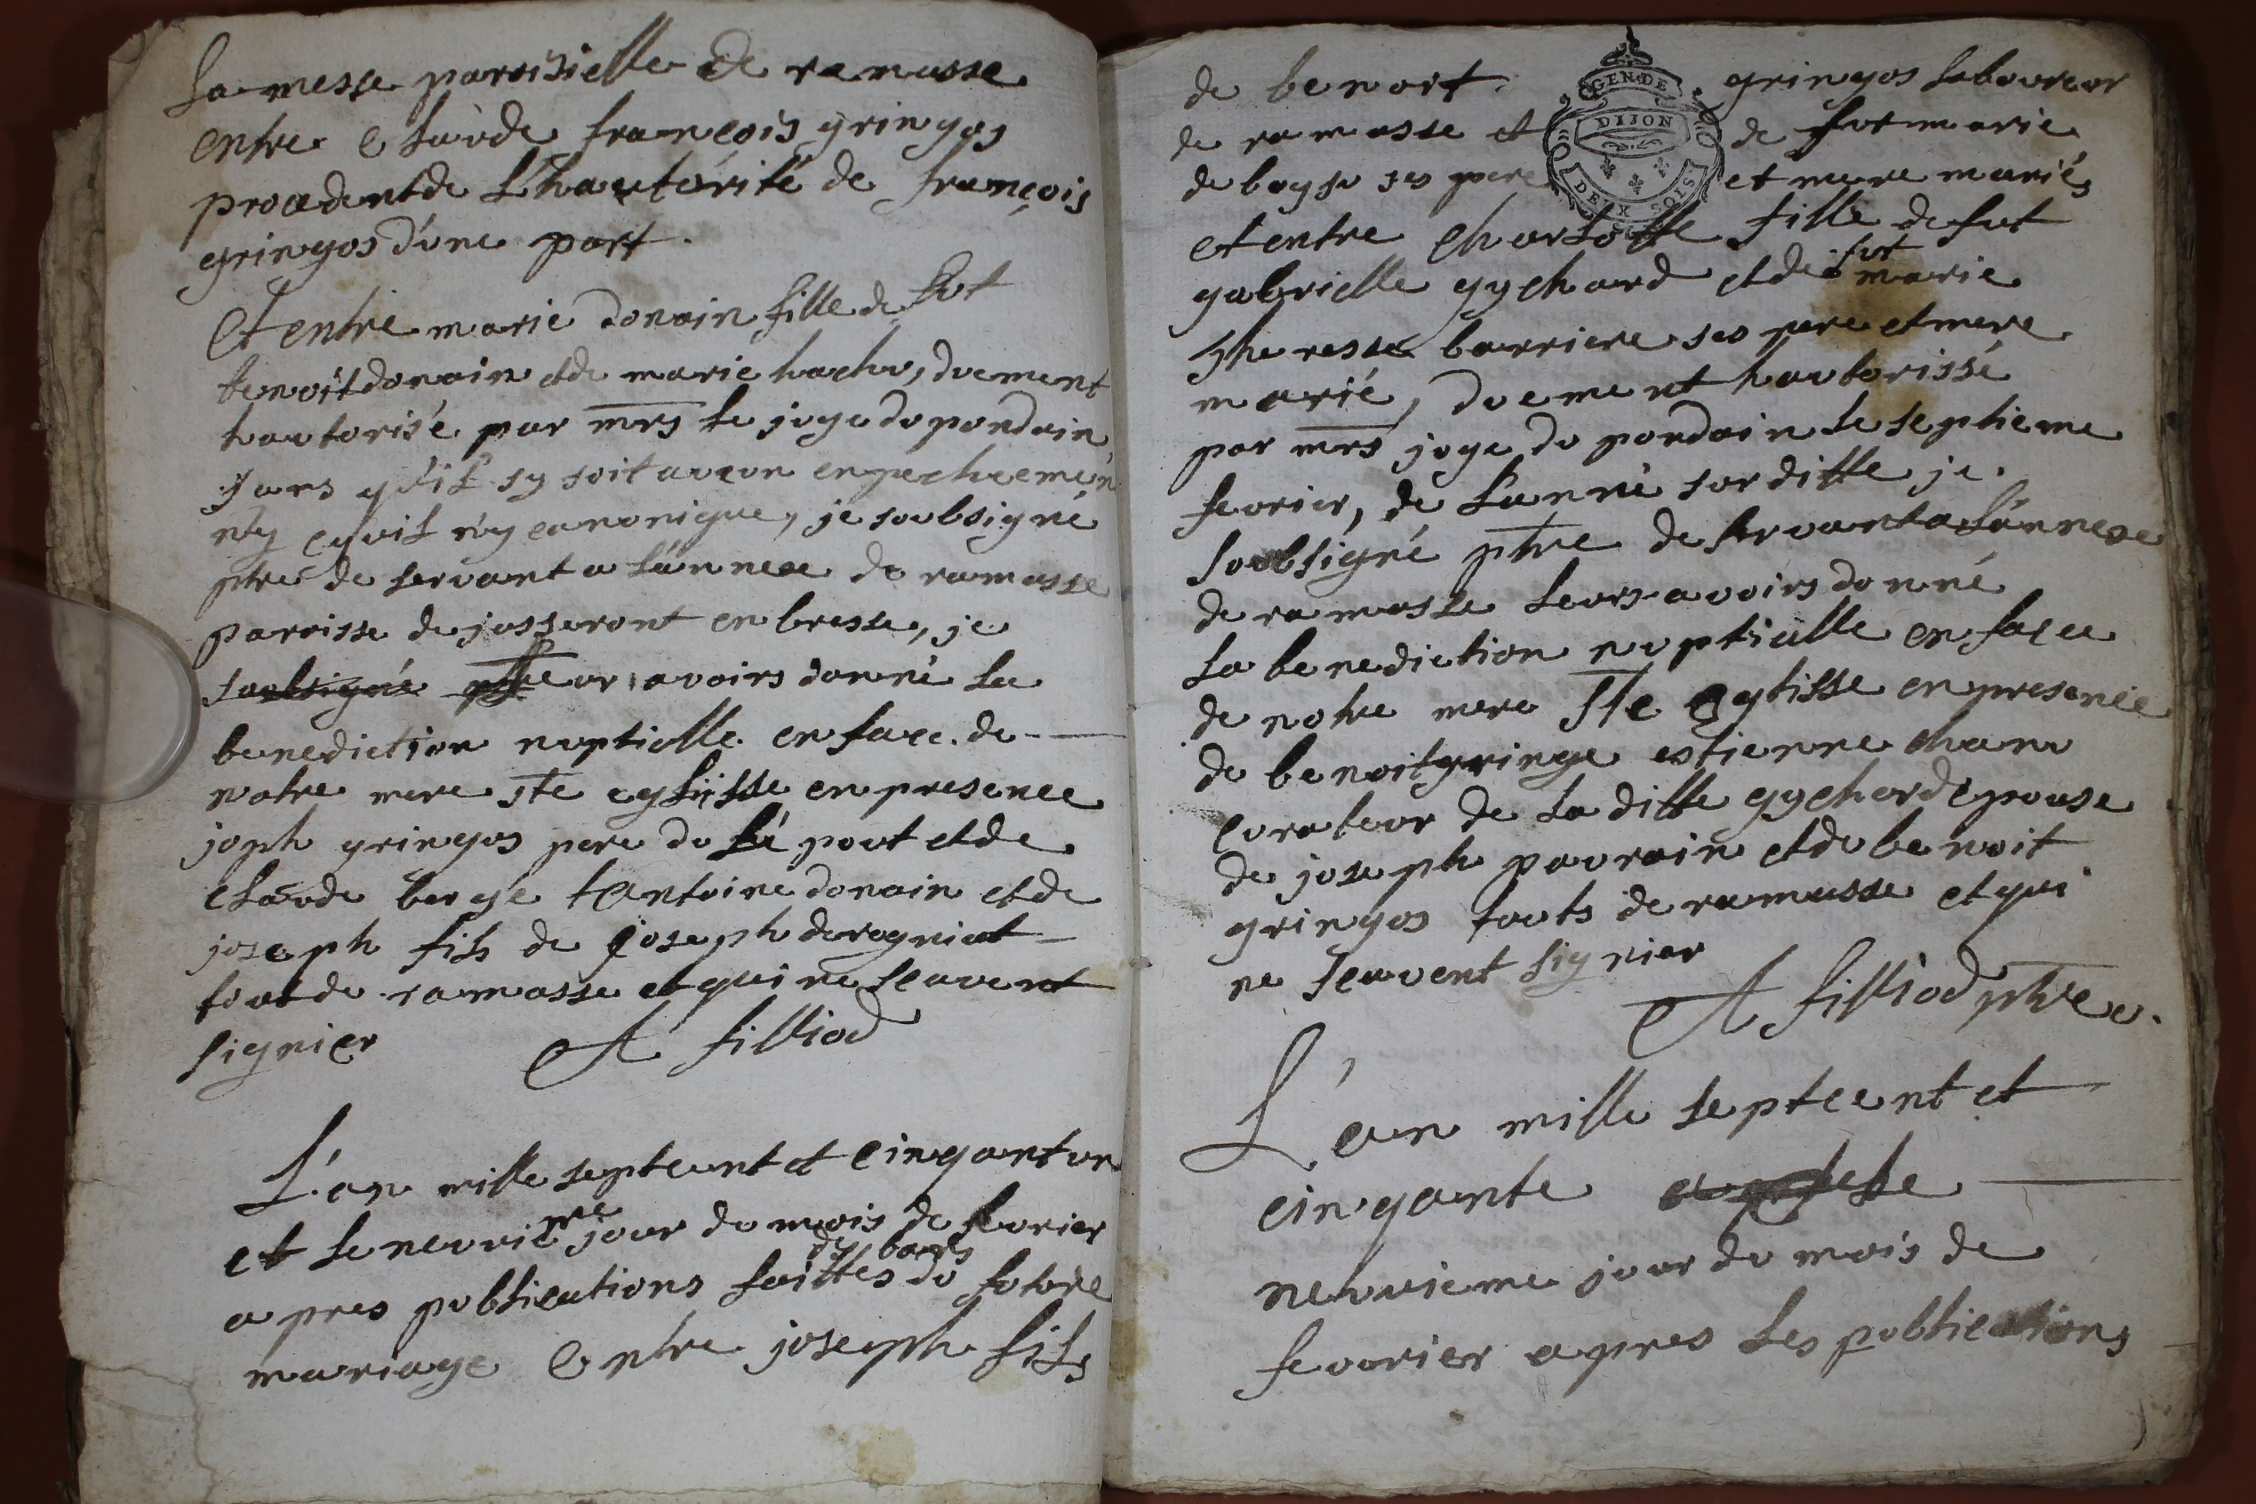 La messe paroisielle de ramasse
entre Claude françois gringos
proadent de L'hautórité de françois
gringos d'une part.
Et entre marie donain fille de fut
benoit donain et de marie hachu, duement
hautorisé par mrs le juge du pondain
sans qu'il sy soit aucun enpechemen
n'y civil n'y canonique, je soubsigné
ptre de servant a L'annexe de ramasse
paroisse de jasseront en bresse, je
soubsigné ptre avoirs donné La
benediction nuptialle en face de
notre mere Ste eglisse en presence
joph gringos pere du Lé pout et de
Claude borge tantoine donain et de
joseph fils de joseph derogniat
tout de ramasse et qui ne scavent
signier A filliod
L'an mille septcent et cinqant un
et Le neuviéme jour du mois de fevrier
des bans
apres publications faittes du future
mariage Entre joseph fils
de benoit gringos laboureur
GEN. DE
DIJON
DEUX SOLS
de ramasse et de fut marie
de boyso ses pere et mere mariés
et entre charlotte fille de fut
gabrielle gychard et de fut marie
theresse barriere ses pere et mere
marié, duement hautorissé
par mrs juge du pondain le septieme
fevrier, de L'anné surditte je
soubsigné ptre de servant a L'annexe
de ramasse leurs avoirs donné
La benediction nuptialle en face
de notre mere Ste eglisse en presence
de benoit gringe estienne chanu
curateur de la ditte gychard epouse
de joseph paurain et de benoit
gringos touts de ramasse et qui
ne scavent signier
A filliod ptre
L'an mille septcent et
cinqante le
neuvieme jour du mois de
fevvrier apres les publications